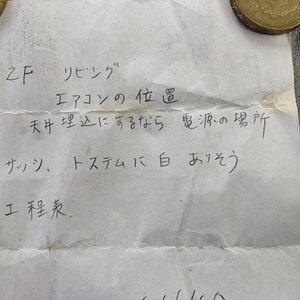 2F リビング
エアコンの位置
天井埋込にするなら 電源の場所
サッシ、トステムに白 ありそう
工程表